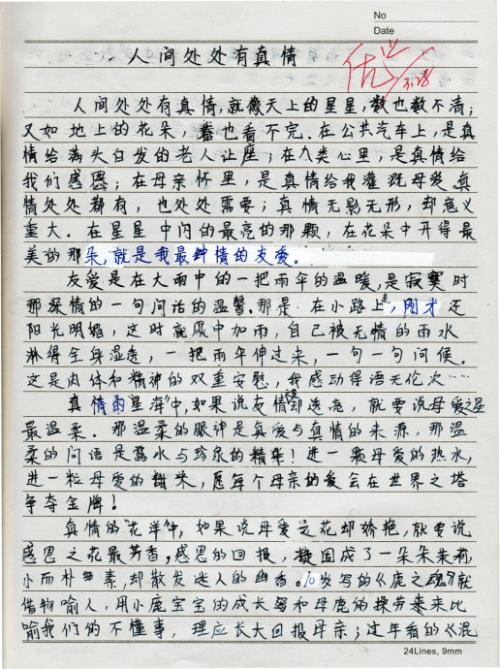 No
Date
人间处处有真情
优
3.28
人间处处有真情,就像天上的星星,数也数不清;
又如地上的花朵,看也看不完.在公共汽车上,是真
情给满头白发的老人让座;在人类心里,是真情给
我们感恩;在母亲怀里,是真情给我灌溉母爱.真
情处处都有,也处处需要;真情无影无形,却意义
重大.在星星中闪的最亮的那颗,在花朵中开得最
美的那朵,就是我最钟情的友爱。
友爱是在大雨中的一把雨伞的温暖,是寂寞时
那深情的一句问话的温馨.那是在小路上,刚才还
阳光明媚,这时就风中加雨,自己被无情的雨水
淋得全身湿透,一把雨伞伸过来,一句一句问候.
这是肉体和精神的双重安慰,我感动得语无伦次……
真情的"星海"中,如果说友情却透亮,就要说母爱之星
最温柔.那温柔的眼神是真爱与真情的来源,那温
柔的问语是露水与珍乐的精华!进一乘母爱的热水,
进一粒母爱的糖米,愿每个母亲的爱会在世界之塔
争夺金牌!
真情的"花洋"中,如果说母爱之花却娇艳,就要说
感恩之花最芳香.感恩的回报,凝固成了一朵朵茉莉,
小而朴素,却散发迷人的幽香.10岁写的《鹿之魂》就
借物喻人,用小鹿宝宝的成长和母鹿的操劳来比
喻我们的不懂事,理应长大回报母亲;过年看的《混
24Lines, 9mm